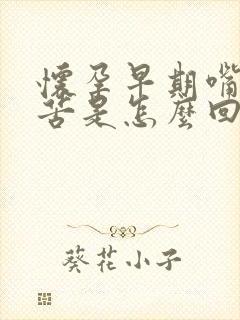 懷孕早期嘴
苦是怎麼回
葵花小子